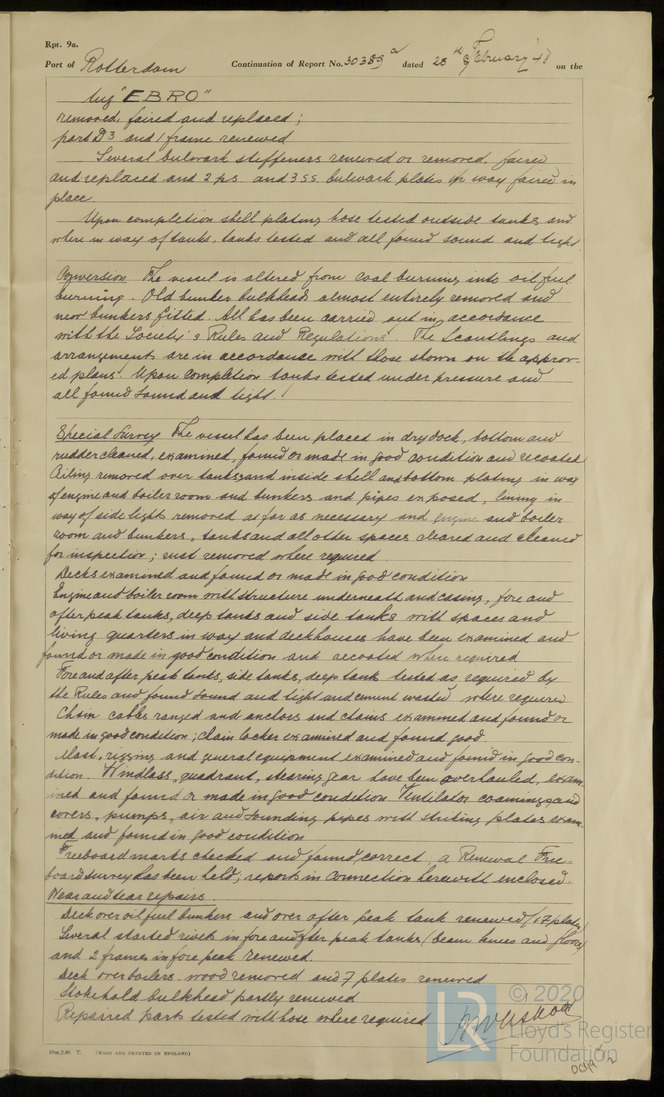 Rpt. 9a.
Port of Rotterdam Continuation of Report No. 30389a dated 28th February '48 on the
tug "EBRO"
removed, faired and replaced;
part D3 and 1 frame renewed
Several bulwark stiffeners renewed or removed, faired
and replaced and 2 p.s. and 3 s.s. bulwark plates in way faired in
place.
Upon completion shell plating hose tested outside tanks and
where in way of tanks, tanks tested and all found sound and tight.
Conversion The vessel is altered from coal burning into oil fuel
burning. Old bunker bulkheads almost entirely removed and
new bunkers fitted. All has been carried out in accordance
with the Society's Rules and Regulations. The Scantlings and
arrangement are in accordance with those shown on the approv-
ed plans. Upon completion tanks tested under pressure and
all found sound and tight.
Special Survey The vessel has been placed in drydock, bottom and
rudder cleaned, examined, found or made in good condition and recoated
Ceiling removed over tanks and inside shell and bottom plating in way
of engine and boiler room and bunkers and pipes exposed, lining in
way of side lights removed as far as necessary and engine and boiler
room and bunkers, tanks and all other spaces cleared and cleaned
for inspection; rust removed where required
Decks examined and found or made in good condition
Engine and boiler room with structure underneath and casing, fore and
after peak tanks, deep tanks and side tanks with spaces and
living quarters in way and deckhouses have been examined and
found or made in good condition and recoated where required
Fore and after peak tanks, side tanks, deep tank tested as required by
the Rules and found sound and tight and cement washed where required
Chain cables ranged and anchors and chains examined and found or
made in good condition; chain locker examined and found good.
Mast, rigging and general equipment examined and found in good con-
dition. Windlass, quadrant, stearing gear have been overhauled, exam-
ined and found or made in good condition Ventilator coamings and
covers, pumps, air and sounding pipes with striking plates exam-
ined and found in good condition
Freeboard marks checked and found correct, a Renewal Free-
board survey has been held; reports in connection herewith enclosed.
Wear and tear repairs.
Deck over oil fuel bunkers and over after peak tank renewed (17 plates)
Several started rivets in fore and after peak tanks (beam knees and floors)
and 2 frames in fore peak renewed.
Deck over boilers wood removed and 7 plates renewed
Stokehold bulkhead partly renewed
Repaired parts tested with hose where required
10m,2,46 T. (MADE AND PRINTED IN ENGLAND)
LR
© 2020
Lloyd's Register
Foundation